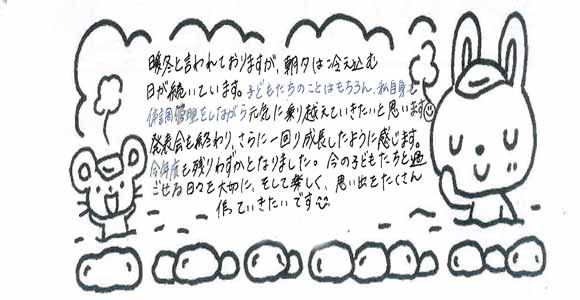 暖冬と言われておりますが、朝夕は冷え込む
日が続いています。子どもたちのことはもちろん、私自身も
体調管理をしながら元気に乗り越えていきたいと思います
発表会も終わり、さらに一回り成長したように感じます。
今年度も残りわずかとなりました。今の子どもたちと過
ごせる日々を大切に、そして楽しく、思い出をたくさん
作っていきたいです